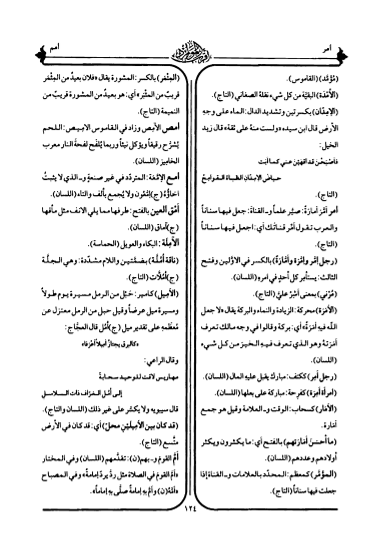 أمر
أمم
(مُؤَمَّد) (القاموس).
(الأَمَدَة) البقيّة من كل شيء نقله الصغاني (التاج).
(الإمِدّان) بكسرتين وتشديد الدال: الماء على وجه
الأرض قال ابن سيده «ولست منه على ثقة» قال زيد
الخيل:
فأصبحن قد أقهين عني كما أبت
حياض الإمدّان الظماء القوامح
(التاج).
أمر أمّر أمارَةً: صيّر علماً و- القناة: جعل فيها سناناً
والعرب تقول أمّر قناتك أي: اجعل فيها سناناً
(التاج).
(رجل إمّر وإمّرَة وأمّارَة) بالكسر في الأولين وفتح
الثالث: يستأمر كل أحد في امره (اللسان).
(مُرْني) بمعنى أَشِرْ عليّ (التاج).
(الأمَرَة) محركة: الزيادة والنماء والبركة يقال «لا جعل
الله فيه أمَرَة» أي: بركة وقالوا في وجه مالك تعرف
أمَرَتَهُ وهو الذي تعرف فيه الخير من كل شيء
(اللسان).
(رجل أمِر) ككتف: مبارك يقبل عليه المال (اللسان).
(امرأة أمِرَة) كفرحة: مباركة على بعلها (اللسان).
(الأمَار) كسحاب: الوقت و- العلامة وقيل هو جمع
أمارة.
(ما أحسنَ أمَارَتهم) بالفتح أي: ما يكثرون ويكثر
أولادهم وعددهم (اللسان).
(المؤَمَّر) كمعظم: المحدّد بالعلامات و- القناة إذا
جعلت فيها سناناً (التاج).
(المِئْمَر) بالكسر: المشورة يقال «فلان بعيد من المئمر
قريب من المئبر» أي: هو بعيد من المشورة قريب من
النميمة (التاج).
أمص الأمص وزاد في القاموس الآميص: اللحم
يُشرّح رقيقاً ويؤكل نيئاً وربما يُلفح لفحة النار معرب
الخاميز (اللسان).
أمع الإمّعَة: المتردد في غير صنعة و- الذي لا يثبت
إخاؤه (ج) إمّعون ولا يُجمع بألف والتاء (اللسان).
أمق أمق العين بالفتح: طرفها مما يلي الأنف مثل مأقها
(ج) آماق (اللسان).
الأمِلَة: البكاء والعويل (الحماسة).
(ناقة أُمُلَّة) بضمتين واللام مشددة: وهي الجلّة
(ج) أُمُلّات (التاج).
(الأميل) كأمير: حبل من الرمل مسيرة يوم طولاً
ومسيرة ميل عرضاً وقيل حبل من الرمل معتزل عن
معظمه على تقدير ميل (ج) أُمُل قال العجّاج:
وقال الراعي:
مهاريس لاقت بالوحيد سحابةً
إلى أمُل الغرّاف ذات السلاسل
قال سيبويه ولا يكسّر على غير ذلك (اللسان والتاج).
(قد كان بين الأميلين محلّ) أي: قد كان في الأرض
متّسع (التاج).
أمّ القومَ و- بهم (ن): تقدّمهم (اللسان) وفي المختار
«أمّ القوم في الصلاة مثل ردّ يردّ إمامة» وفي المصباح
«أمّه (ن) وأمّ به إمامة صلّى به إماماً».
١٢٤